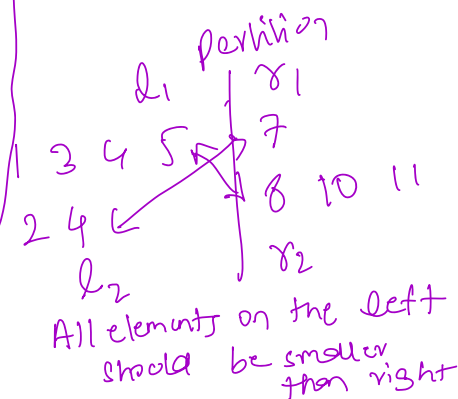 Partition
l1 r1
1 3 4 5 7
2 4 8 10 11
l2 r2
All elements on the left
should be smaller
than right